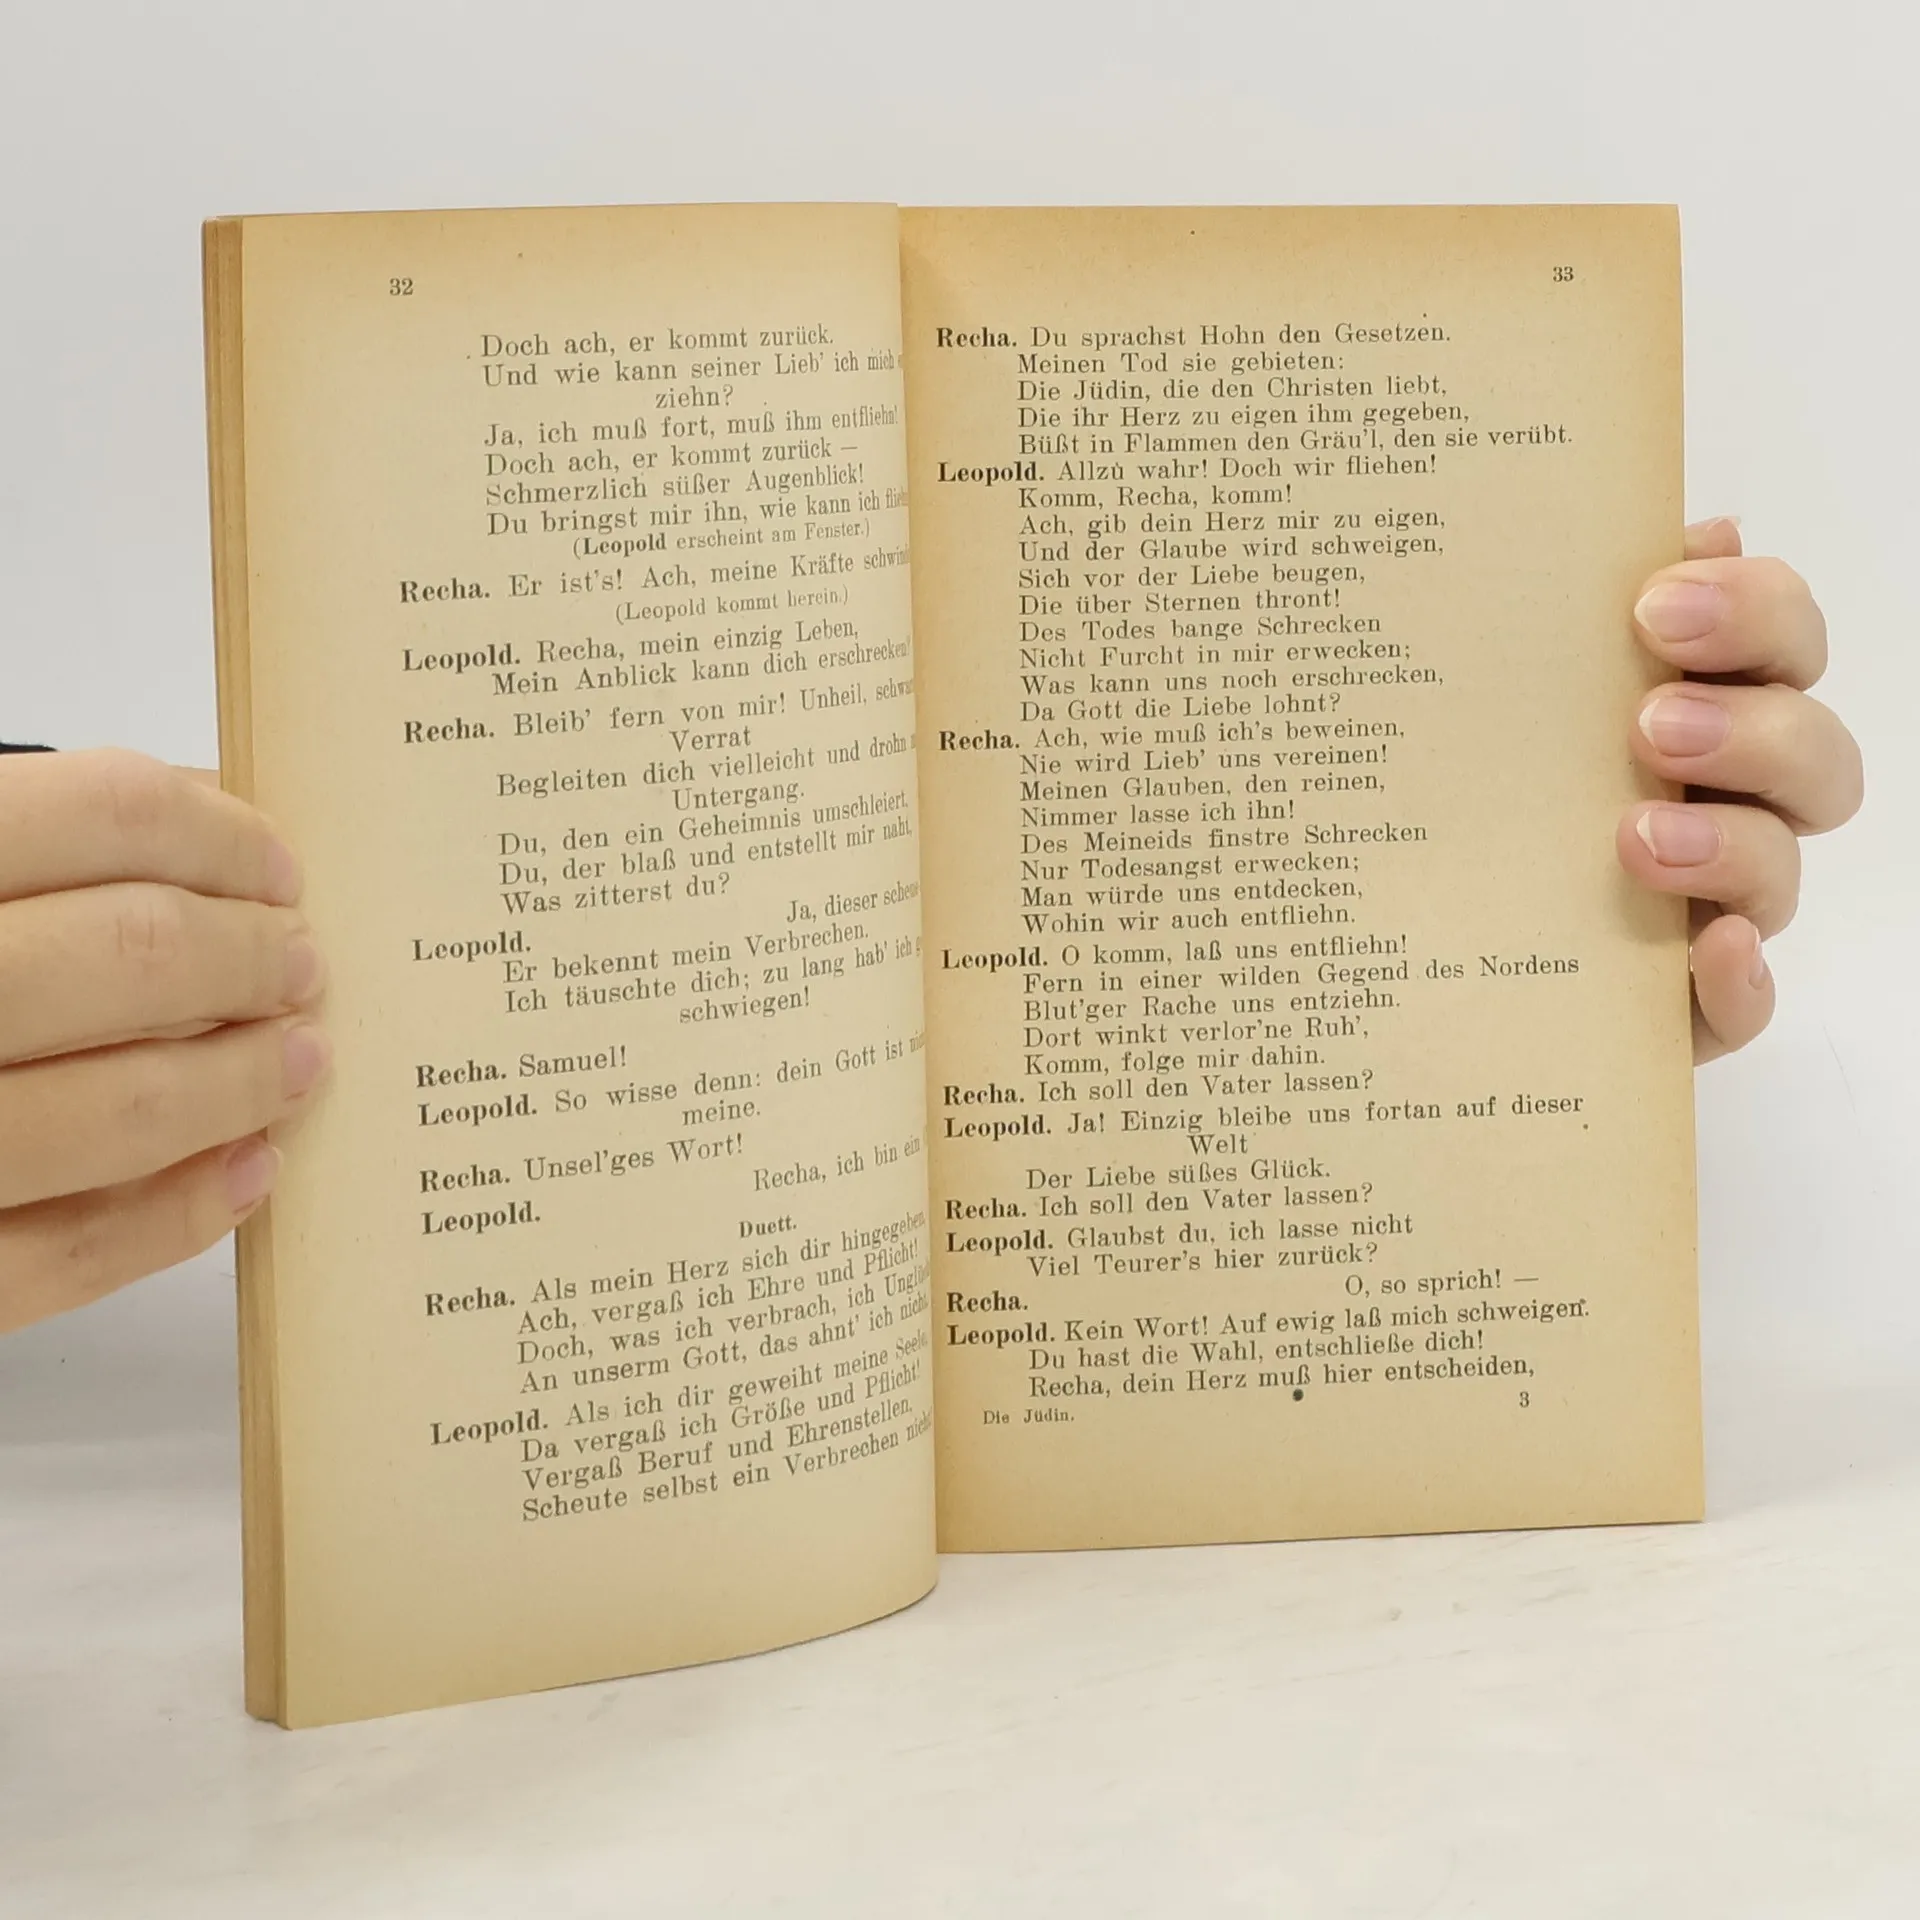 32
Doch ach, er kommt zurück.
Und wie kann seiner Lieb' ich mich
ziehn?
Ja, ich muß fort, muß ihm entfliehn!
Doch ach, er kommt zurück —
Schmerzlich süßer Augenblick!
Du bringst mir ihn, wie kann ich
(Leopold erscheint am Fenster.)
Recha. Er ist's! Ach, meine Kräfte
(Leopold kommt herein.)
Leopold. Recha, mein einzig Leben,
Mein Anblick kann dich erschrecken?
Recha. Bleib' fern von mir! Unheil,
Verrat
Begleiten dich vielleicht und drohn
Untergang.
Du, den ein Geheimnis umschleiert,
Du, der blaß und entstellt mir naht,
Was zitterst du?
Ja, dieser
Leopold.
Er bekennt mein Verbrechen.
Ich täuschte dich; zu lang hab' ich
schwiegen!
Recha. Samuel!
Leopold. So wisse denn: dein Gott ist
meine.
Recha. Unsel'ges Wort!
Recha, ich bin ein
Leopold.
Duett.
Recha. Als mein Herz sich dir hingegeben,
Ach, vergaß ich Ehre und Pflicht!
Doch, was ich verbrach, ich
An unserm Gott, das ahnt' ich nicht.
Leopold. Als ich dir geweiht meine Seele,
Da vergaß ich Größe und Pflicht!
Vergaß Beruf und Ehrenstellen,
Scheute selbst ein Verbrechen nicht
33
Recha. Du sprachst Hohn den Gesetzen.
Meinen Tod sie gebieten:
Die Jüdin, die den Christen liebt,
Die ihr Herz zu eigen ihm gegeben,
Büßt in Flammen den Gräu'l, den sie verübt.
Leopold. Allzu wahr! Doch wir fliehen!
Komm, Recha, komm!
Ach, gib dein Herz mir zu eigen,
Und der Glaube wird schweigen,
Sich vor der Liebe beugen,
Die über Sternen thront!
Des Todes bange Schrecken
Nicht Furcht in mir erwecken;
Was kann uns noch erschrecken,
Da Gott die Liebe lohnt?
Recha. Ach, wie muß ich's beweinen,
Nie wird Lieb' uns vereinen!
Meinen Glauben, den reinen,
Nimmer lasse ich ihn!
Des Meineids finstre Schrecken
Nur Todesangst erwecken;
Man würde uns entdecken,
Wohin wir auch entfliehn.
Leopold. O komm, laß uns entfliehn!
Fern in einer wilden Gegend des Nordens
Blut'ger Rache uns entziehn.
Dort winkt verlor'ne Ruh',
Komm, folge mir dahin.
Recha. Ich soll den Vater lassen?
Leopold. Ja! Einzig bleibe uns fortan auf dieser
Welt
Der Liebe süßes Glück.
Recha. Ich soll den Vater lassen?
Leopold. Glaubst du, ich lasse nicht
Viel Teurer's hier zurück?
O, so sprich! —
Recha.
Leopold. Kein Wort! Auf ewig laß mich schweigen.
Du hast die Wahl, entschließe dich!
Recha, dein Herz muß hier entscheiden,
Die Jüdin.
3